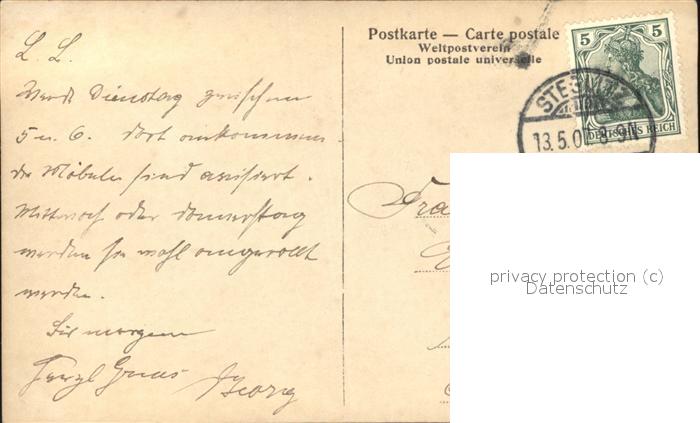 L. L.
Werde Dienstag zwischen
5 u. 6. dort ankommen.
die Möbeln sind avisiert.
Mittwoch oder Donnerstag
werden sie wohl angerollt
werden.
Bis morgen
Herzl Gruss Georg
Postkarte — Carte postale
Weltpostverein
Union postale universelle
5 5
DEUTSCHES REICH
13.5.0 8-9N
privacy protection (c)
Datenschutz